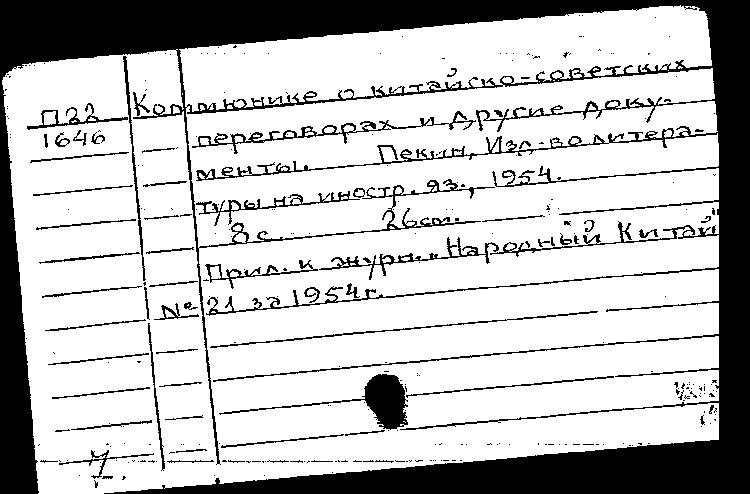 П22
1646
Коммюнике о китайско-советских
переговорах и другие доку-
менты. Пекин, Изд-во литера-
туры на иностр. яз., 1954.
8 с. 26 см.
Прил. к журн. „Народный Китай"
№ 21 за 1954 г.
7.